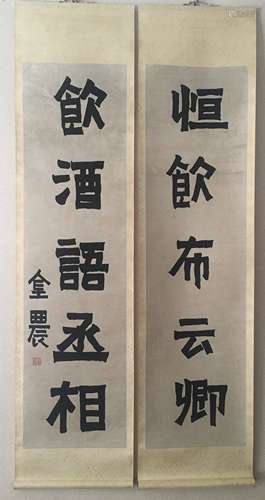 恒飲布云卿
飲酒語丞相
金農